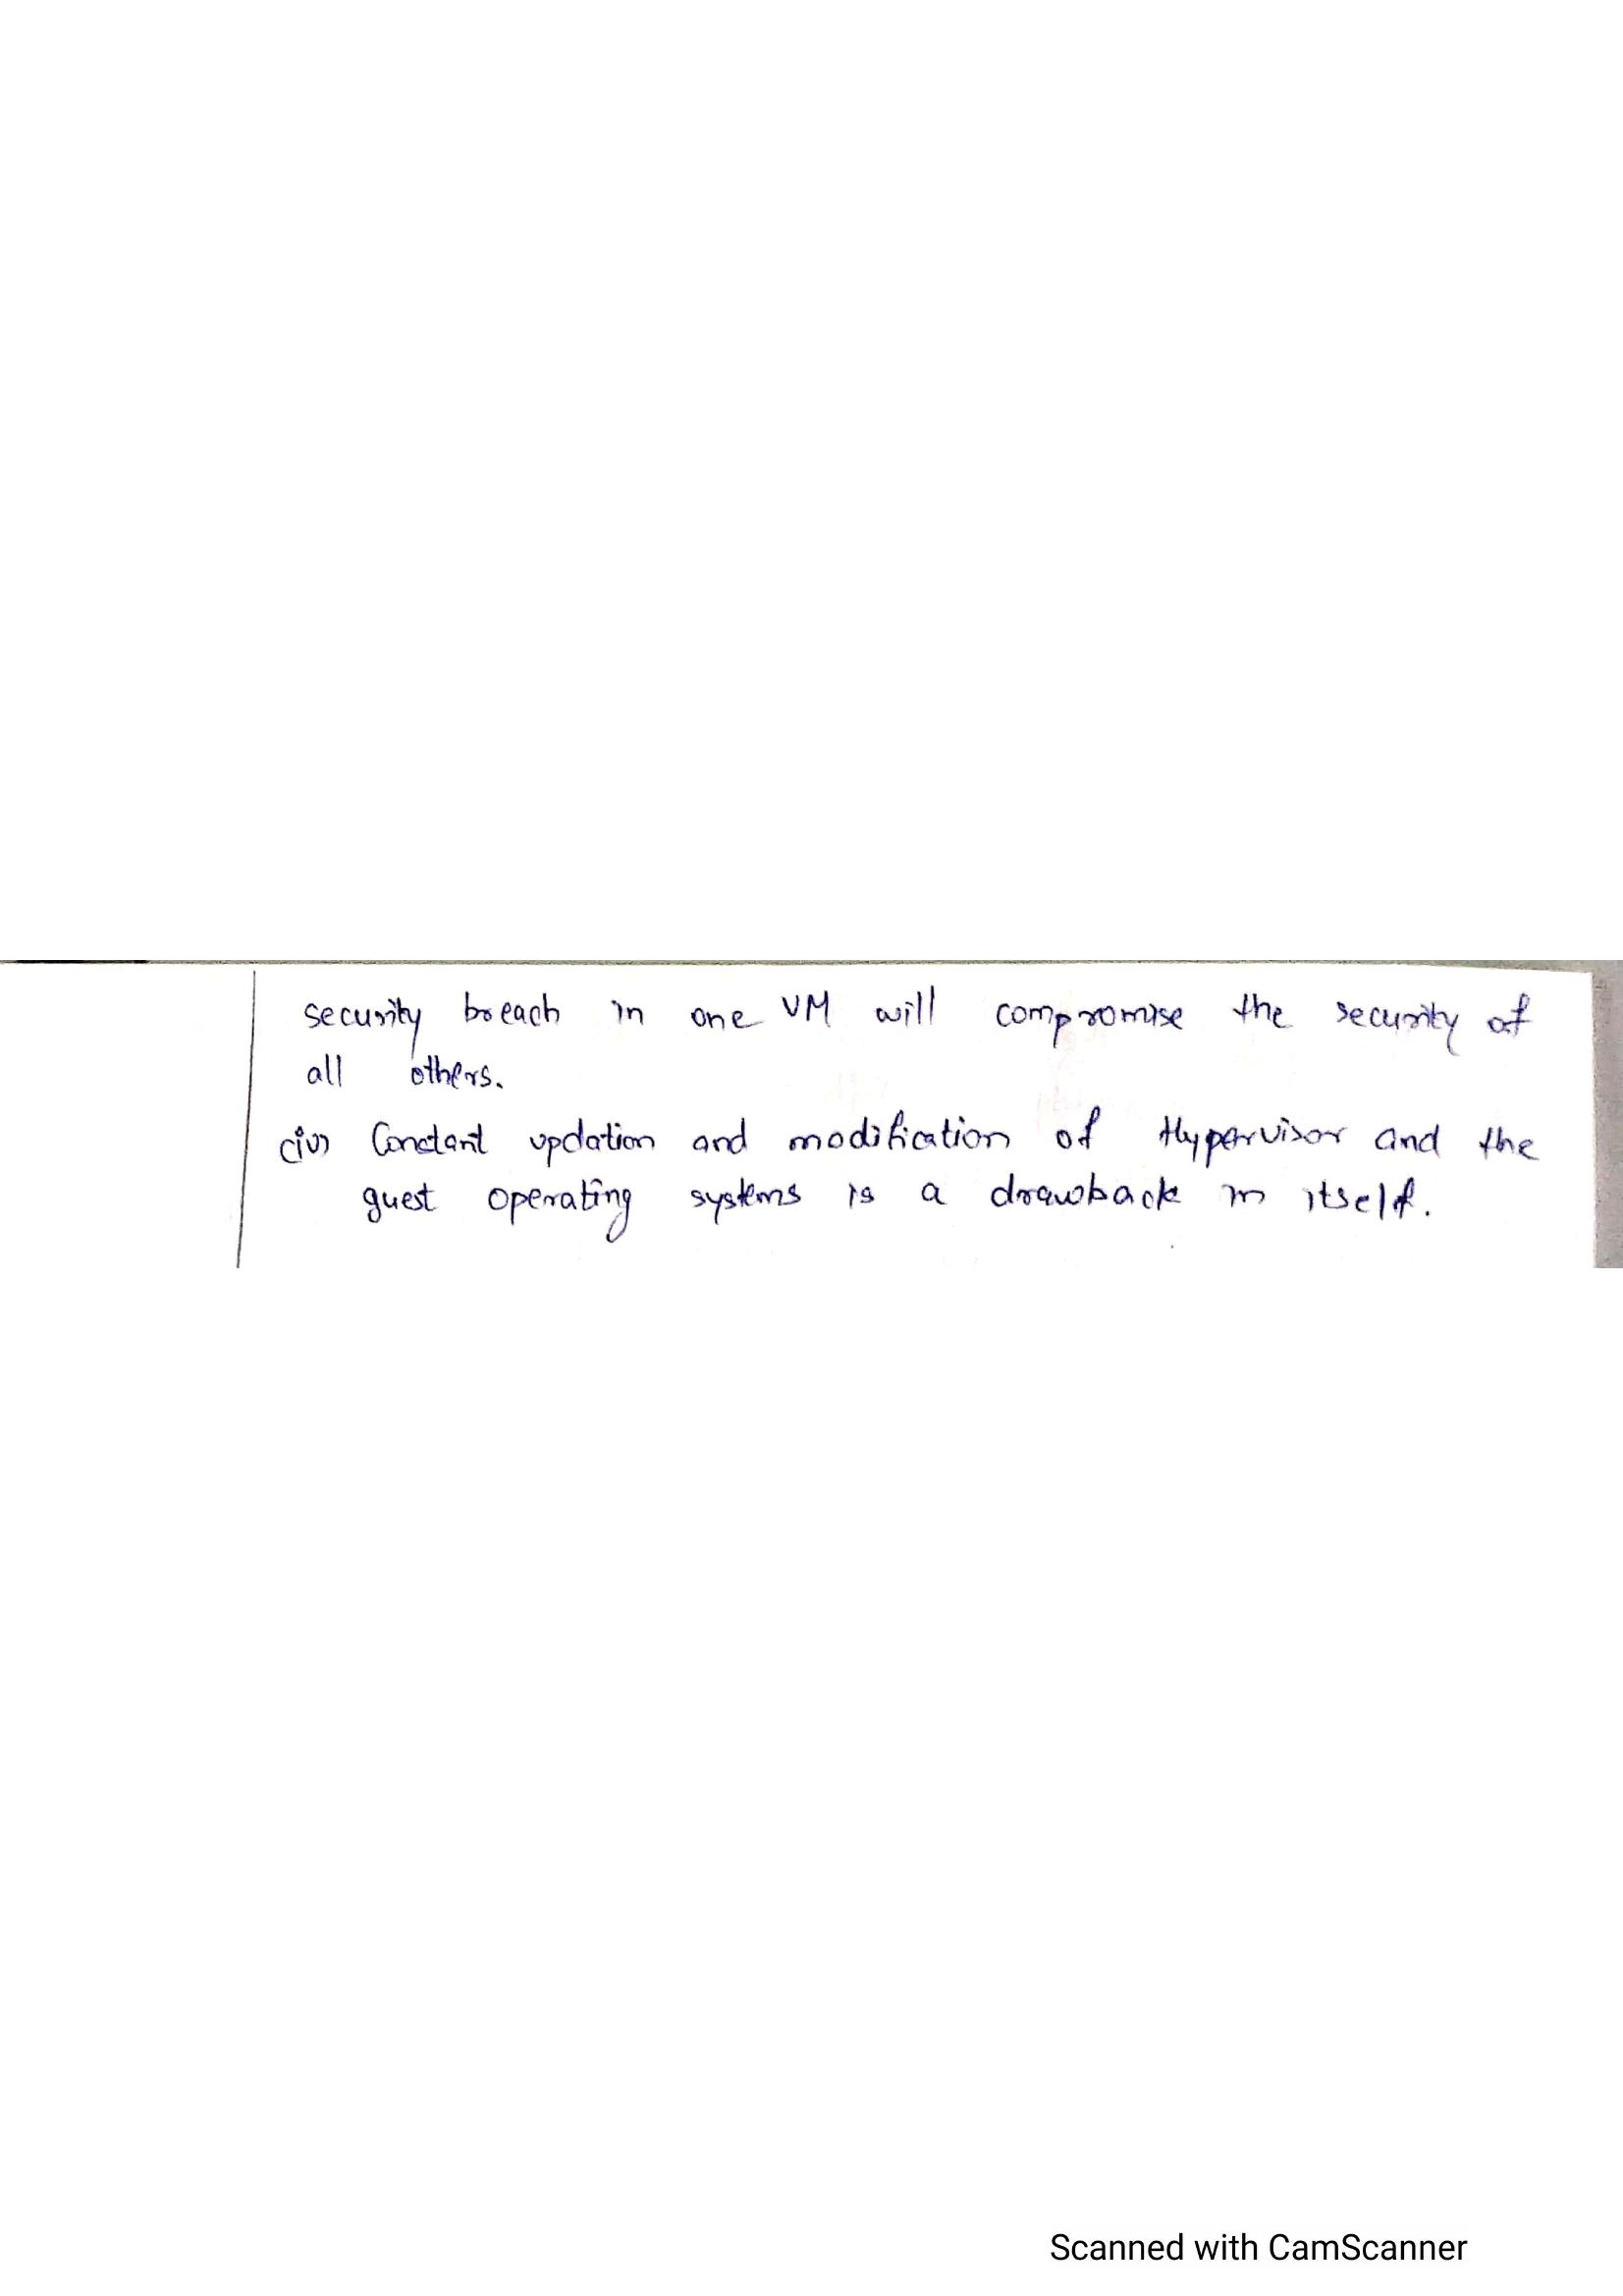 security breach in one VM will compromise the security of
all others.
(iv) Constant updation and modification of Hypervisor and the
guest operating systems is a drawback in itself.
Scanned with CamScanner